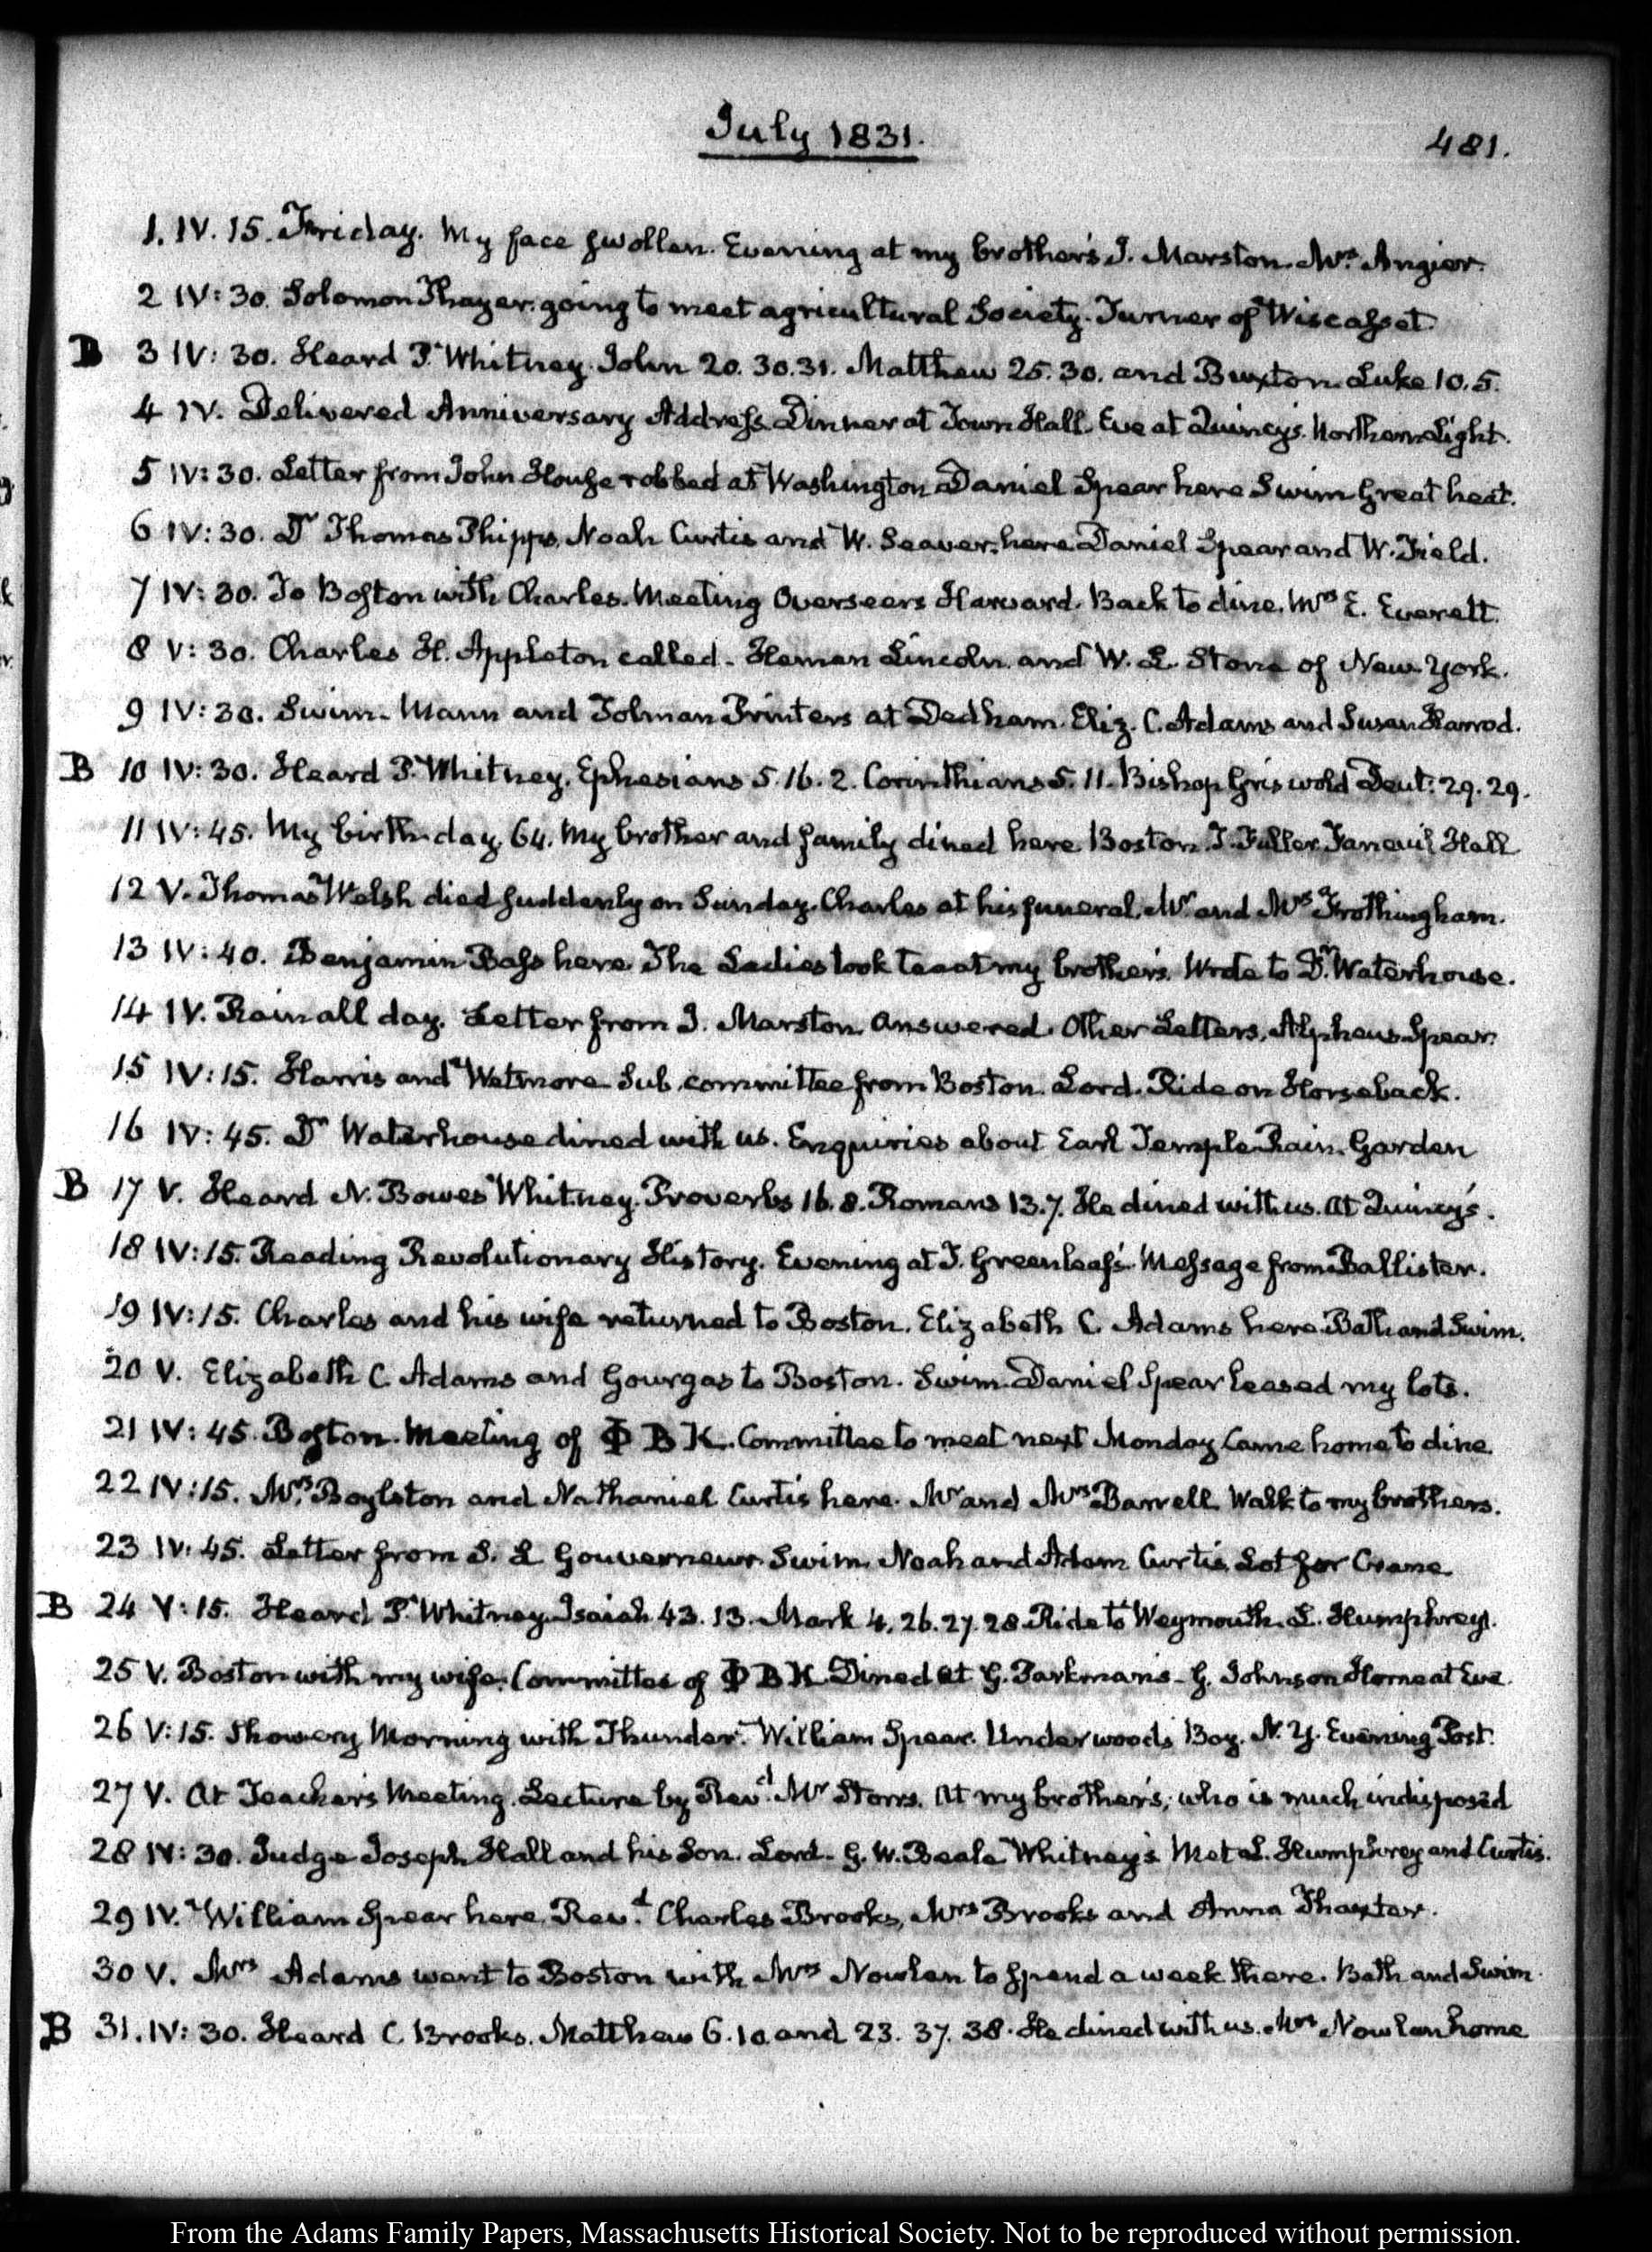 July 1831.
481.
1. IV. 15. Friday. My face swollen. Evening at my brother's J. Marston. Mrs. Angier.
2 IV: 30. Solomon Thayer. going to meet agricultural Society. Turner of Wiscasset.
B 3 IV: 30. Heard P. Whitney. John 20. 30.31. Matthew 25. 30. and Buxton. Luke 10. 5.
4 IV. Delivered Anniversary Address. Dinner at Town Hall. Eve at Quincy's. Northern Light.
5 IV: 30. Letter from John House robbed at Washington Daniel Spear here Swim Great heat.
6 IV: 30. Dr Thomas Phipps, Noah Curtis and W. Seaver. here Daniel Spear and W. Field.
7 IV: 30. To Boston with Charles. Meeting Overseers Harvard. Back to dine. Mrs E. Everett.
8 V: 30. Charles H. Appleton called. Heman Lincoln. and W. L. Stone of New York.
9 IV: 30. Swim. Mann and Tolman Printers at Dedham. Eliz. C. Adams and Susan Harrod.
B 10 IV: 30. Heard P. Whitney. Ephesians 5. 16. 2. Corinthians 5. 11. Bishop Griswold Deut: 29. 29.
11 IV: 45. My birth-day. 64. My brother and family dined here Boston. T. Fuller Faneuil Hall
12 V. Thomas Welsh died suddenly on Sunday. Charles at his funeral. Mr. and Mrs Frothingham.
13 IV: 40. Benjamin Bass here. The Ladies took tea at my brother's. Wrote to Dr. Waterhouse.
14 IV. Rain all day. Letter from J. Marston answered. Other Letters. Alpheus Spear.
15 IV: 15. Harris and Wetmore Sub committee from Boston. Lord. Ride on Horseback.
16 IV: 45. Dr Waterhouse dined with us. Enquiries about Earl Temple Rain. Garden
B 17 V. Heard N. Bowes Whitney. Proverbs 16. 8. Romans 13. 7. He dined with us. At Quincy's.
18 IV: 15. Reading Revolutionary History. Evening at T. Greenleaf's. Message from Ballister.
19 IV: 15. Charles and his wife returned to Boston. Elizabeth C. Adams here Bath and Swim.
20 V. Elizabeth C. Adams and Gourgas to Boston. Swim. Daniel Spear leased my lots.
21 IV: 45. Boston. Meeting of Φ B K. Committee to meet next Monday Came home to dine.
22 IV: 15. Mrs. Boylston and Nathaniel Curtis here. Mr and Mrs Barrell Walk to my brothers.
23 IV: 45. Letter from S. L Gouverneur. Swim. Noah and Adam Curtis. Lot for Crane
B 24 V: 15. Heard P. Whitney. Isaiah 43. 13. Mark 4. 26. 27. 28 Ride to Weymouth. L. Humphrey.
25 V. Boston with my wife. Committee of Φ B K Dined at G. Parkman's. G. Johnson Home at Eve.
26 V: 15. Showery Morning with Thunder. William Spear. Underwood's Boy. N. Y. Evening Post.
27 V. At Teacher's Meeting. Lecture by Revd. Mr Storrs. At my brother's, who is much indisposed
28 IV: 30. Judge Joseph Hall and his Son. Lord. G. W. Beale Whitney's Met L. Humphrey and Curtis.
29 IV. William Spear here. Revd. Charles Brooks, Mrs Brooks and Anna Thaxter.
30 V. Mrs Adams went to Boston with Mrs Nowlan to spend a week there. Bath and Swim.
B 31. IV: 30. Heard C. Brooks. Matthew 6. 10 and 23. 37. 38. He dined with us. Mrs Nowlan home
From the Adams Family Papers, Massachusetts Historical Society. Not to be reproduced without permission.